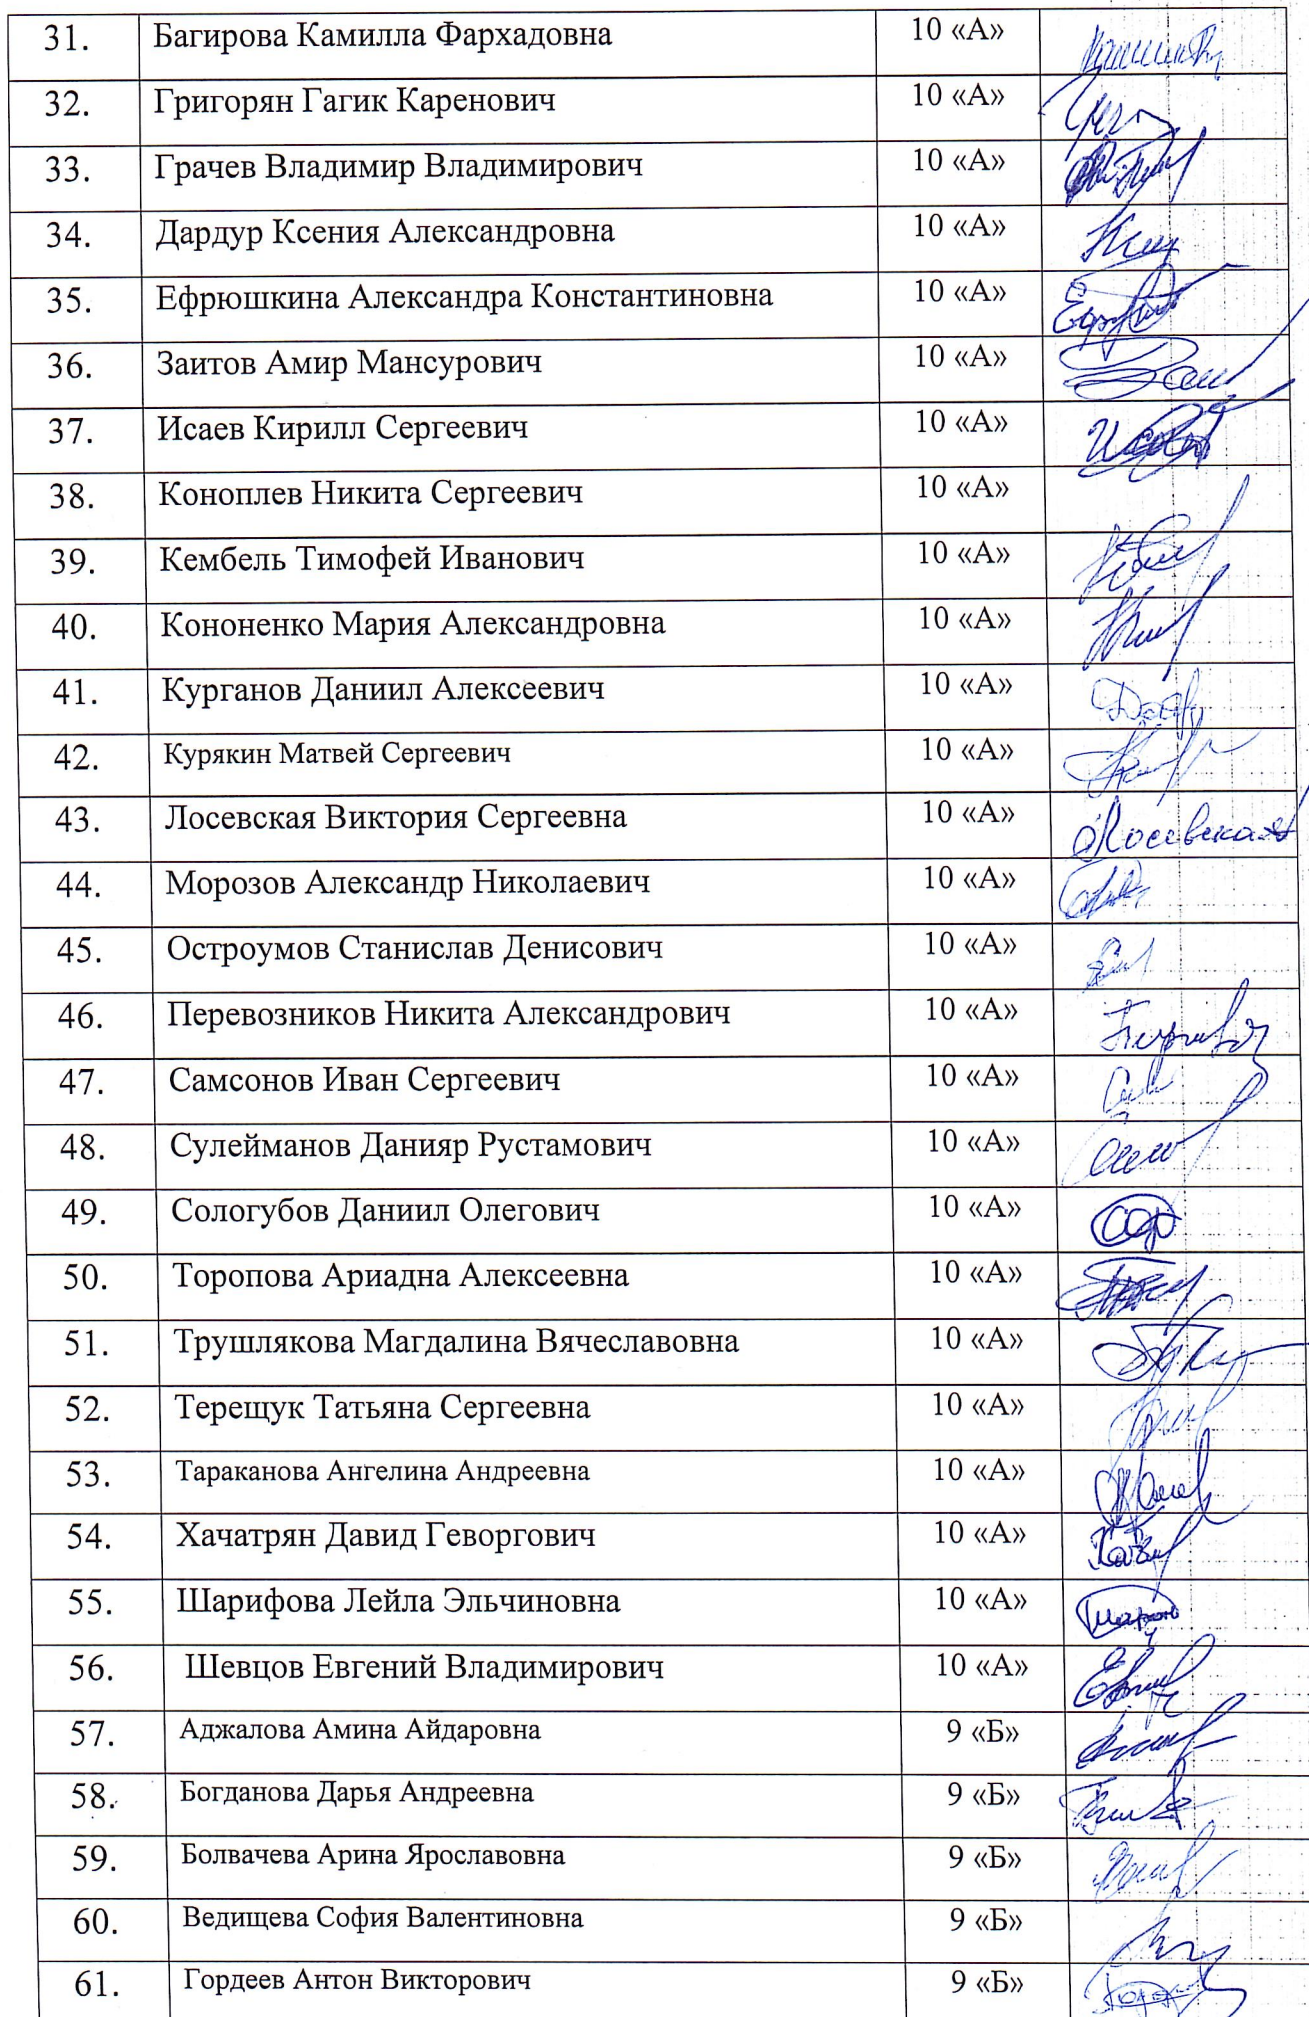 31. Багирова Камилла Фархадовна 10 «А»
32. Григорян Гагик Каренович 10 «А»
33. Грачев Владимир Владимирович 10 «А»
34. Дардур Ксения Александровна 10 «А»
35. Ефрюшкина Александра Константиновна 10 «А»
36. Заитов Амир Мансурович 10 «А»
37. Исаев Кирилл Сергеевич 10 «А»
38. Коноплев Никита Сергеевич 10 «А»
39. Кембель Тимофей Иванович 10 «А»
40. Кононенко Мария Александровна 10 «А»
41. Курганов Даниил Алексеевич 10 «А»
42. Курякин Матвей Сергеевич 10 «А»
43. Лосевская Виктория Сергеевна 10 «А» Лосевская
44. Морозов Александр Николаевич 10 «А»
45. Остроумов Станислав Денисович 10 «А»
46. Перевозников Никита Александрович 10 «А»
47. Самсонов Иван Сергеевич 10 «А»
48. Сулейманов Данияр Рустамович 10 «А»
49. Сологубов Даниил Олегович 10 «А»
50. Торопова Ариадна Алексеевна 10 «А»
51. Трушлякова Магдалина Вячеславовна 10 «А»
52. Терещук Татьяна Сергеевна 10 «А»
53. Тараканова Ангелина Андреевна 10 «А»
54. Хачатрян Давид Геворгович 10 «А»
55. Шарифова Лейла Эльчиновна 10 «А»
56. Шевцов Евгений Владимирович 10 «А»
57. Аджалова Амина Айдаровна 9 «Б»
58. Богданова Дарья Андреевна 9 «Б»
59. Болвачева Арина Ярославовна 9 «Б»
60. Ведищева София Валентиновна 9 «Б»
61. Гордеев Антон Викторович 9 «Б»